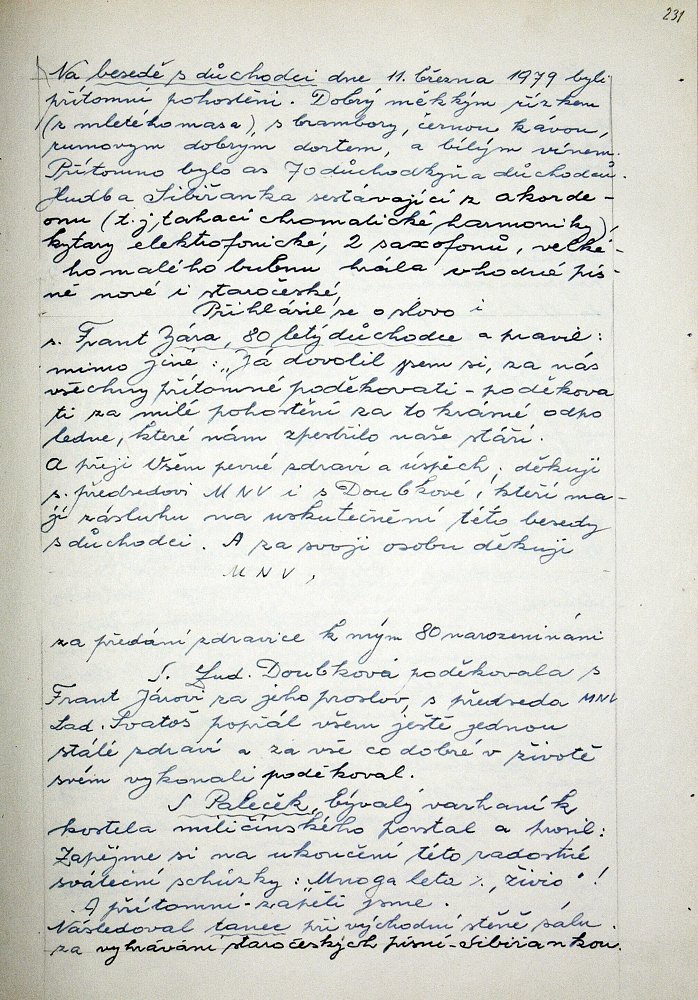 231
Na besedě s důchodci dne 11. března 1979 byli
přítomní pohoštěni. Dobrý měkkým řízkem
(z mletého masa), s brambory, černou kávou,
rumovym dobrym dortem, a bílým vínem.
Přítomno bylo as 70 důchodkyň a důchodců.
Hudba Sibiřanka sestávající z akorde-
onu (t. j. tahací chromatické harmoniky),
kytary elektrofonické, 2 saxofonů, velké-
ho malého bubnu hrála vhodné pís-
ně nové i staročeské,
Přihlásil se o slovo i
s. Frant Zára, 80 letý důchodce a pravil:
mimo jiné: "Já dovolil jsem si, za nás
všechny přítomné poděkovati - poděkova
ti za milé pohostění za to krásné odpo
ledne, které nám zpestřilo naše stáří.
A přeji Všem pevné zdraví a úspěch, děkuji
s. předsedovi MNV i s Doubkové, kteří ma-
jí zásluhu na uskutečnění této besedy
s důchodci. A za svoji osobu děkuji
MNV,
za předání zdravice k mým 80 narozeninám
S. Lud. Doubková poděkovala s
Frant Járovi za jeho proslov, s předseda MNV
Lad. Svatoš popřál všem ještě jednou
stálé zdraví a za vše co dobré v životě
svém vykonali poděkoval.
S Paleček, bývalý varhaník
kostela miličínského povstal a prosil:
Zapějme si na ukončení této radostné
sváteční schůzky: "Mnoga leta "živio"!
A přítomní - zapěli jsme.
Následoval tanec při východní stěně sálu
za vyhrávání staročeských písní - Sibiřankou.